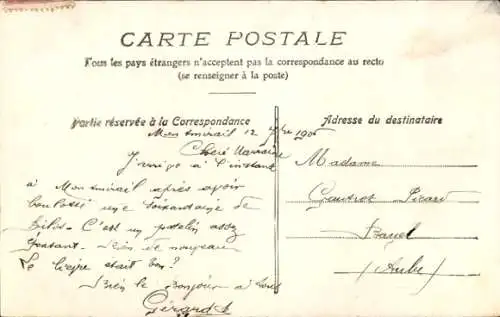 CARTE POSTALE
Tous les pays étrangers n'acceptent pas la correspondance au recto
(se renseigner à la poste)
Partie réservée à la Correspondance
Adresse du destinataire
Montmirail 12 1905
Chère Marraine
J'arrive à l'instant
à Montmirail après avoir
boulotté une soixantaine de
Kilos - C'est un patelin assez
épatant - Rien de nouveau
Le lièvre était bon?
Bien le bonjour à tous
Gérard
Madame
Picard
Bayel
(Aube)